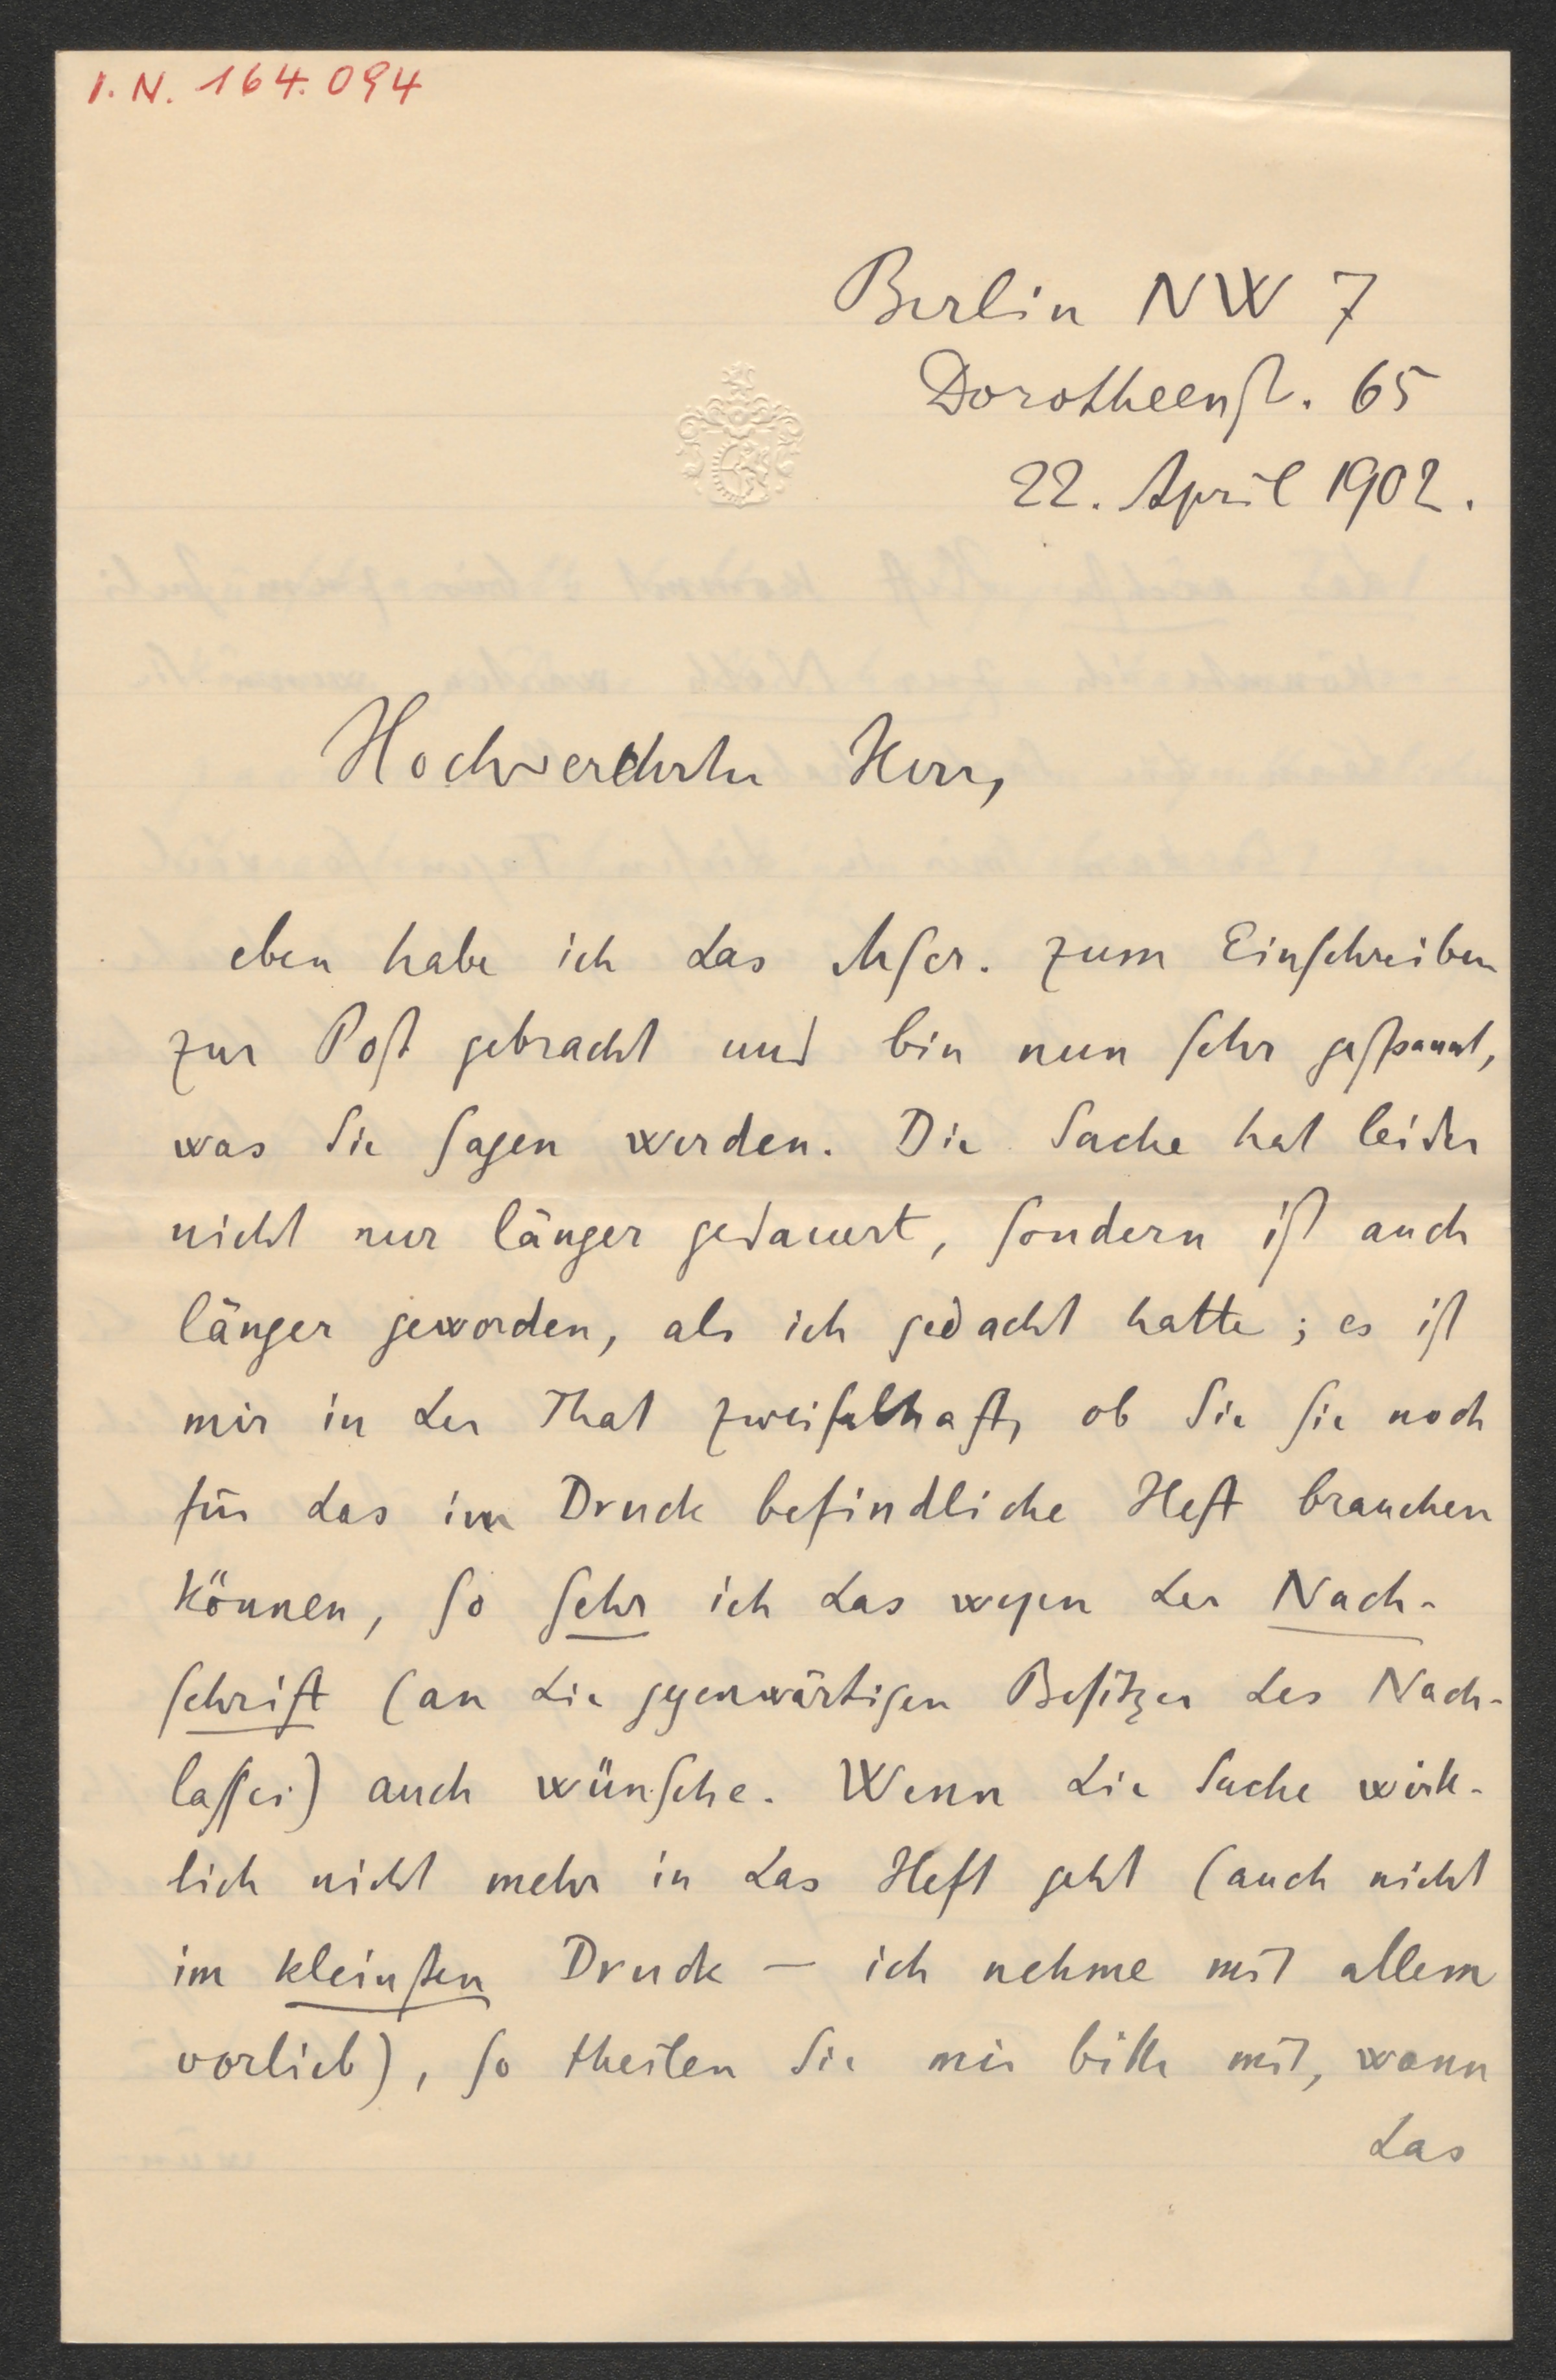 I. N. 164.094
Berlin NW 7
Dorotheenst. 65
22. April 1902.
Hochverehrter Herr,
eben habe ich das Mscr. zum Einschreiben
zur Post gebracht und bin nun sehr gespannt,
was Sie sagen werden. Die Sache hat leider
nicht nur länger gedauert, sondern ist auch
länger geworden, als ich gedacht hatte; es ist
mir in der That zweifelhaft, ob Sie sie noch
für das im Druck befindliche Heft brauchen
können, so sehr ich das wegen der Nach-
schrift (an die gegenwärtigen Besitzer des Nach-
lasses) auch wünsche. Wenn die Sache wirk-
lich nicht mehr in das Heft geht (auch nicht
im kleinsten Druck – ich nehme mit allem
vorlieb), so theilen Sie mir bitte mit, wann
das